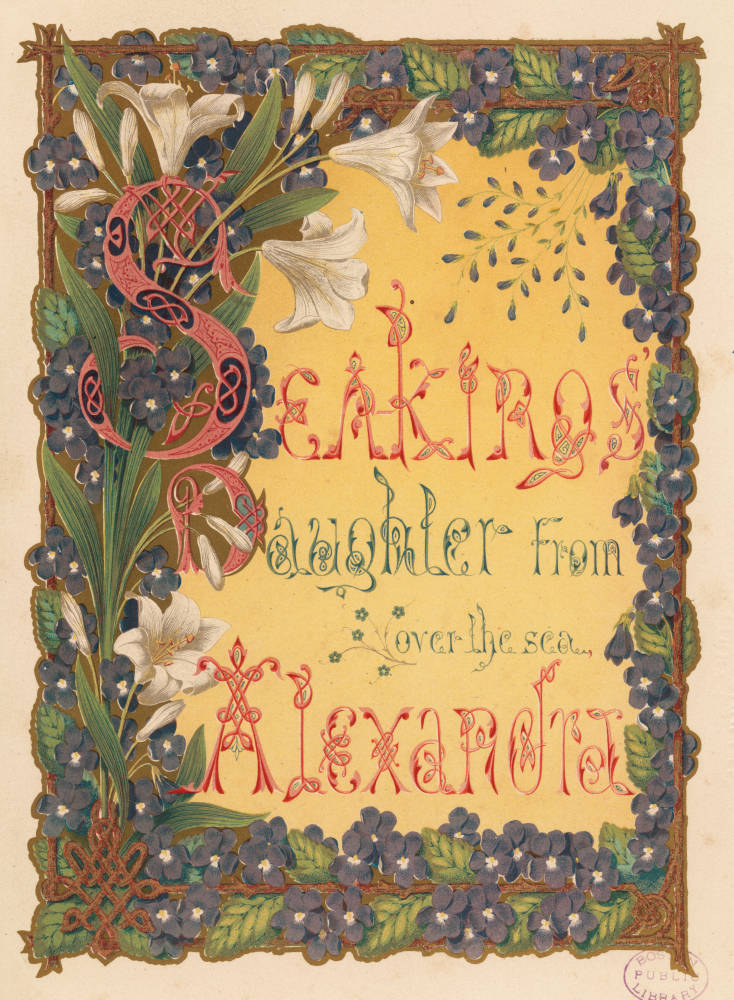 Seakings'
Daughter from
over the sea,
Alexandra
BOSTON
PUBLIC
LIBRARY